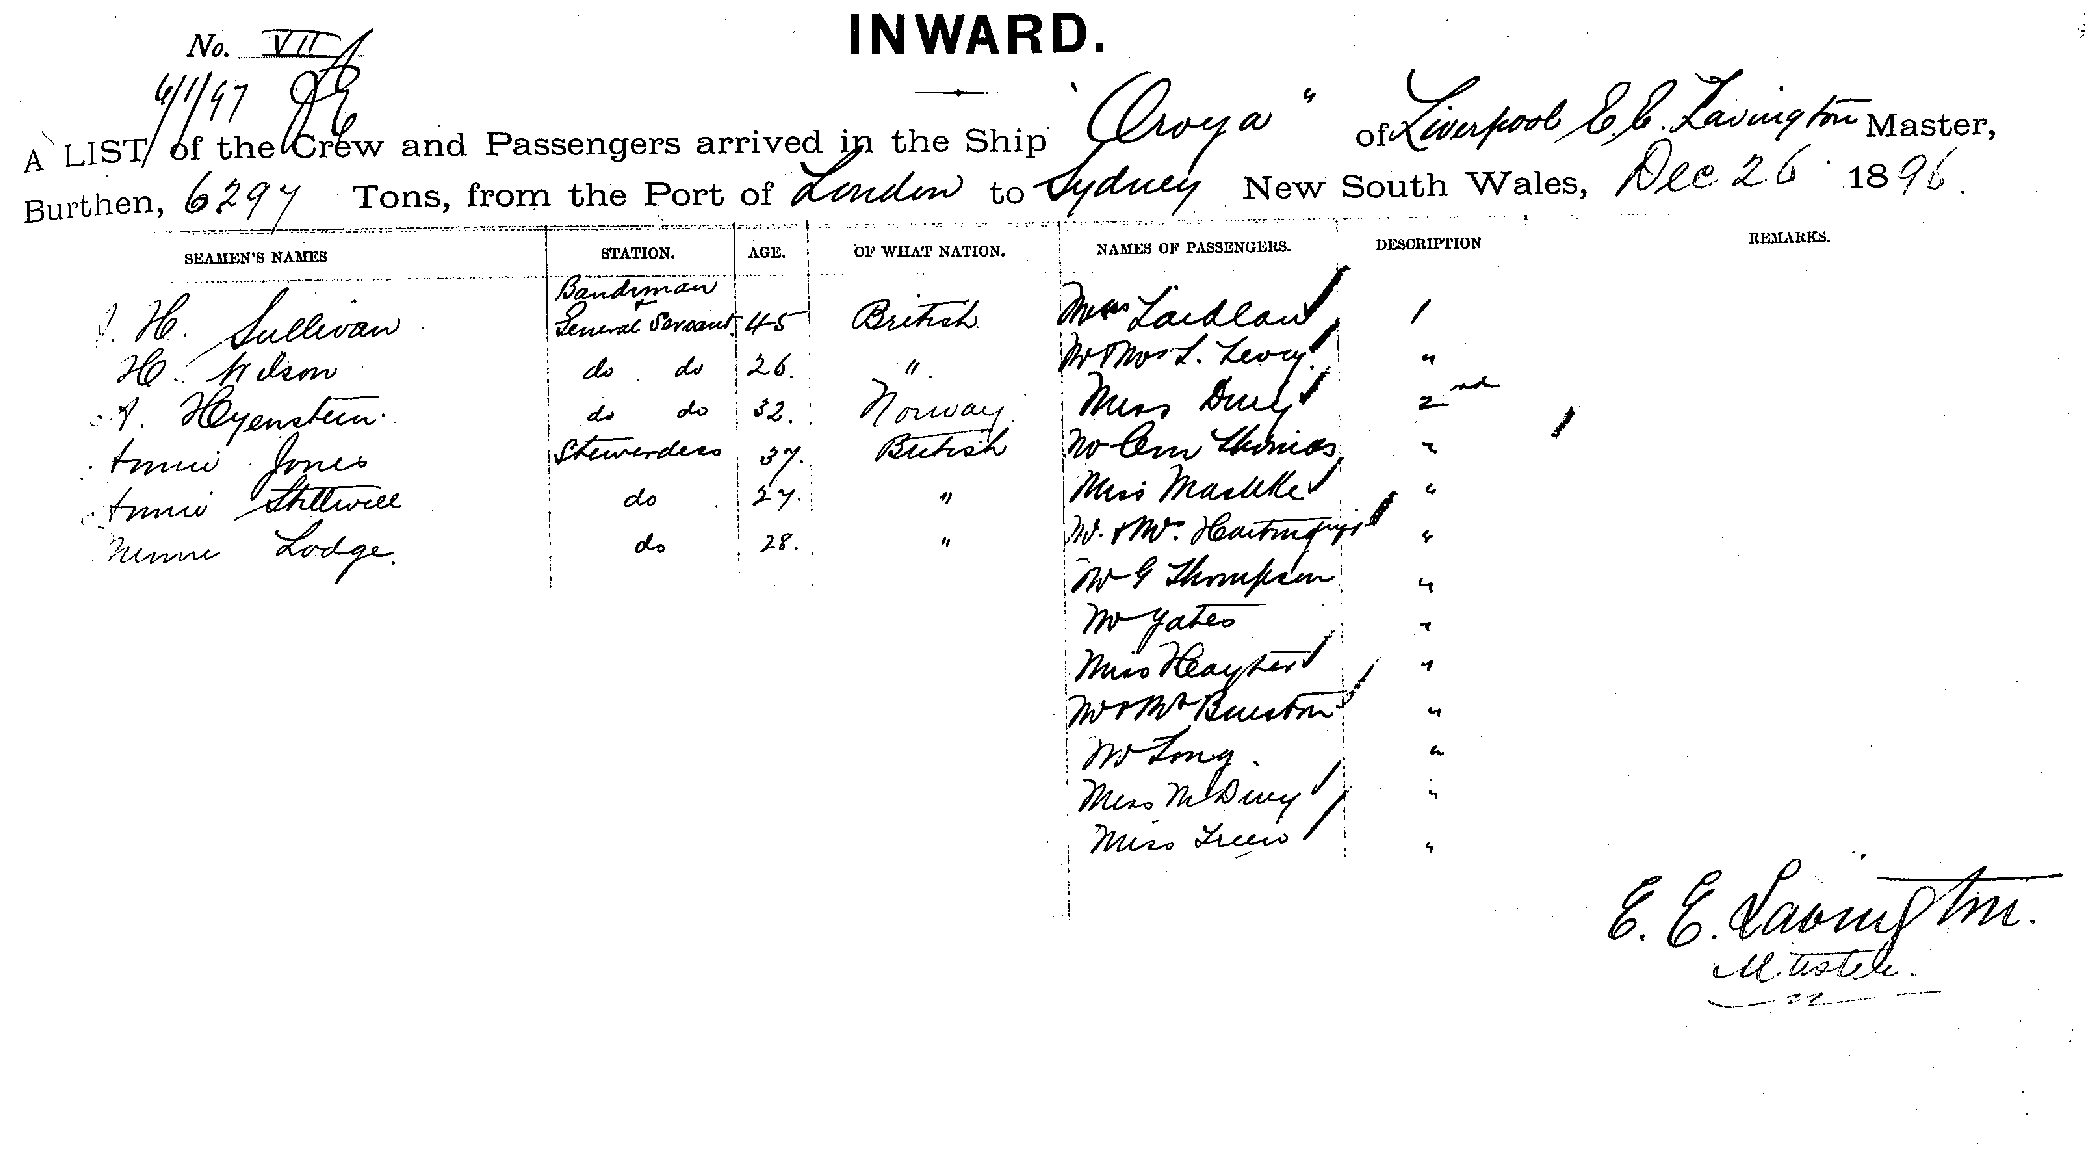 INWARD.
No. VII
6/1/97
A LIST of the Crew and Passengers arrived in the Ship "Oroya" of Liverpool E. E. Lavington Master,
Burthen, 6297 Tons, from the Port of London to Sydney New South Wales, Dec 26 1896.
SEAMEN'S NAMES STATION. AGE. OF WHAT NATION. NAMES OF PASSENGERS. DESCRIPTION REMARKS.
Bandsman +
H. Sullivan General Servant 45 British Laidlaw 1
H. Wilson do do 26. " Mr & Mrs L. Levy "
A. Heyenstein. do do 32. Norway Miss Dury 2nd
Annie Jones Stewardess 37. British Mr Thomas "
Annie Stillwell do 27. " Miss "
Minnie Lodge. do 28. " "
Mr G Thompson "
Mr Yates "
Miss "
Mr & Mrs "
Mr Long. "
Miss M Dury "
Miss "
E. E. Lavington.
Master.